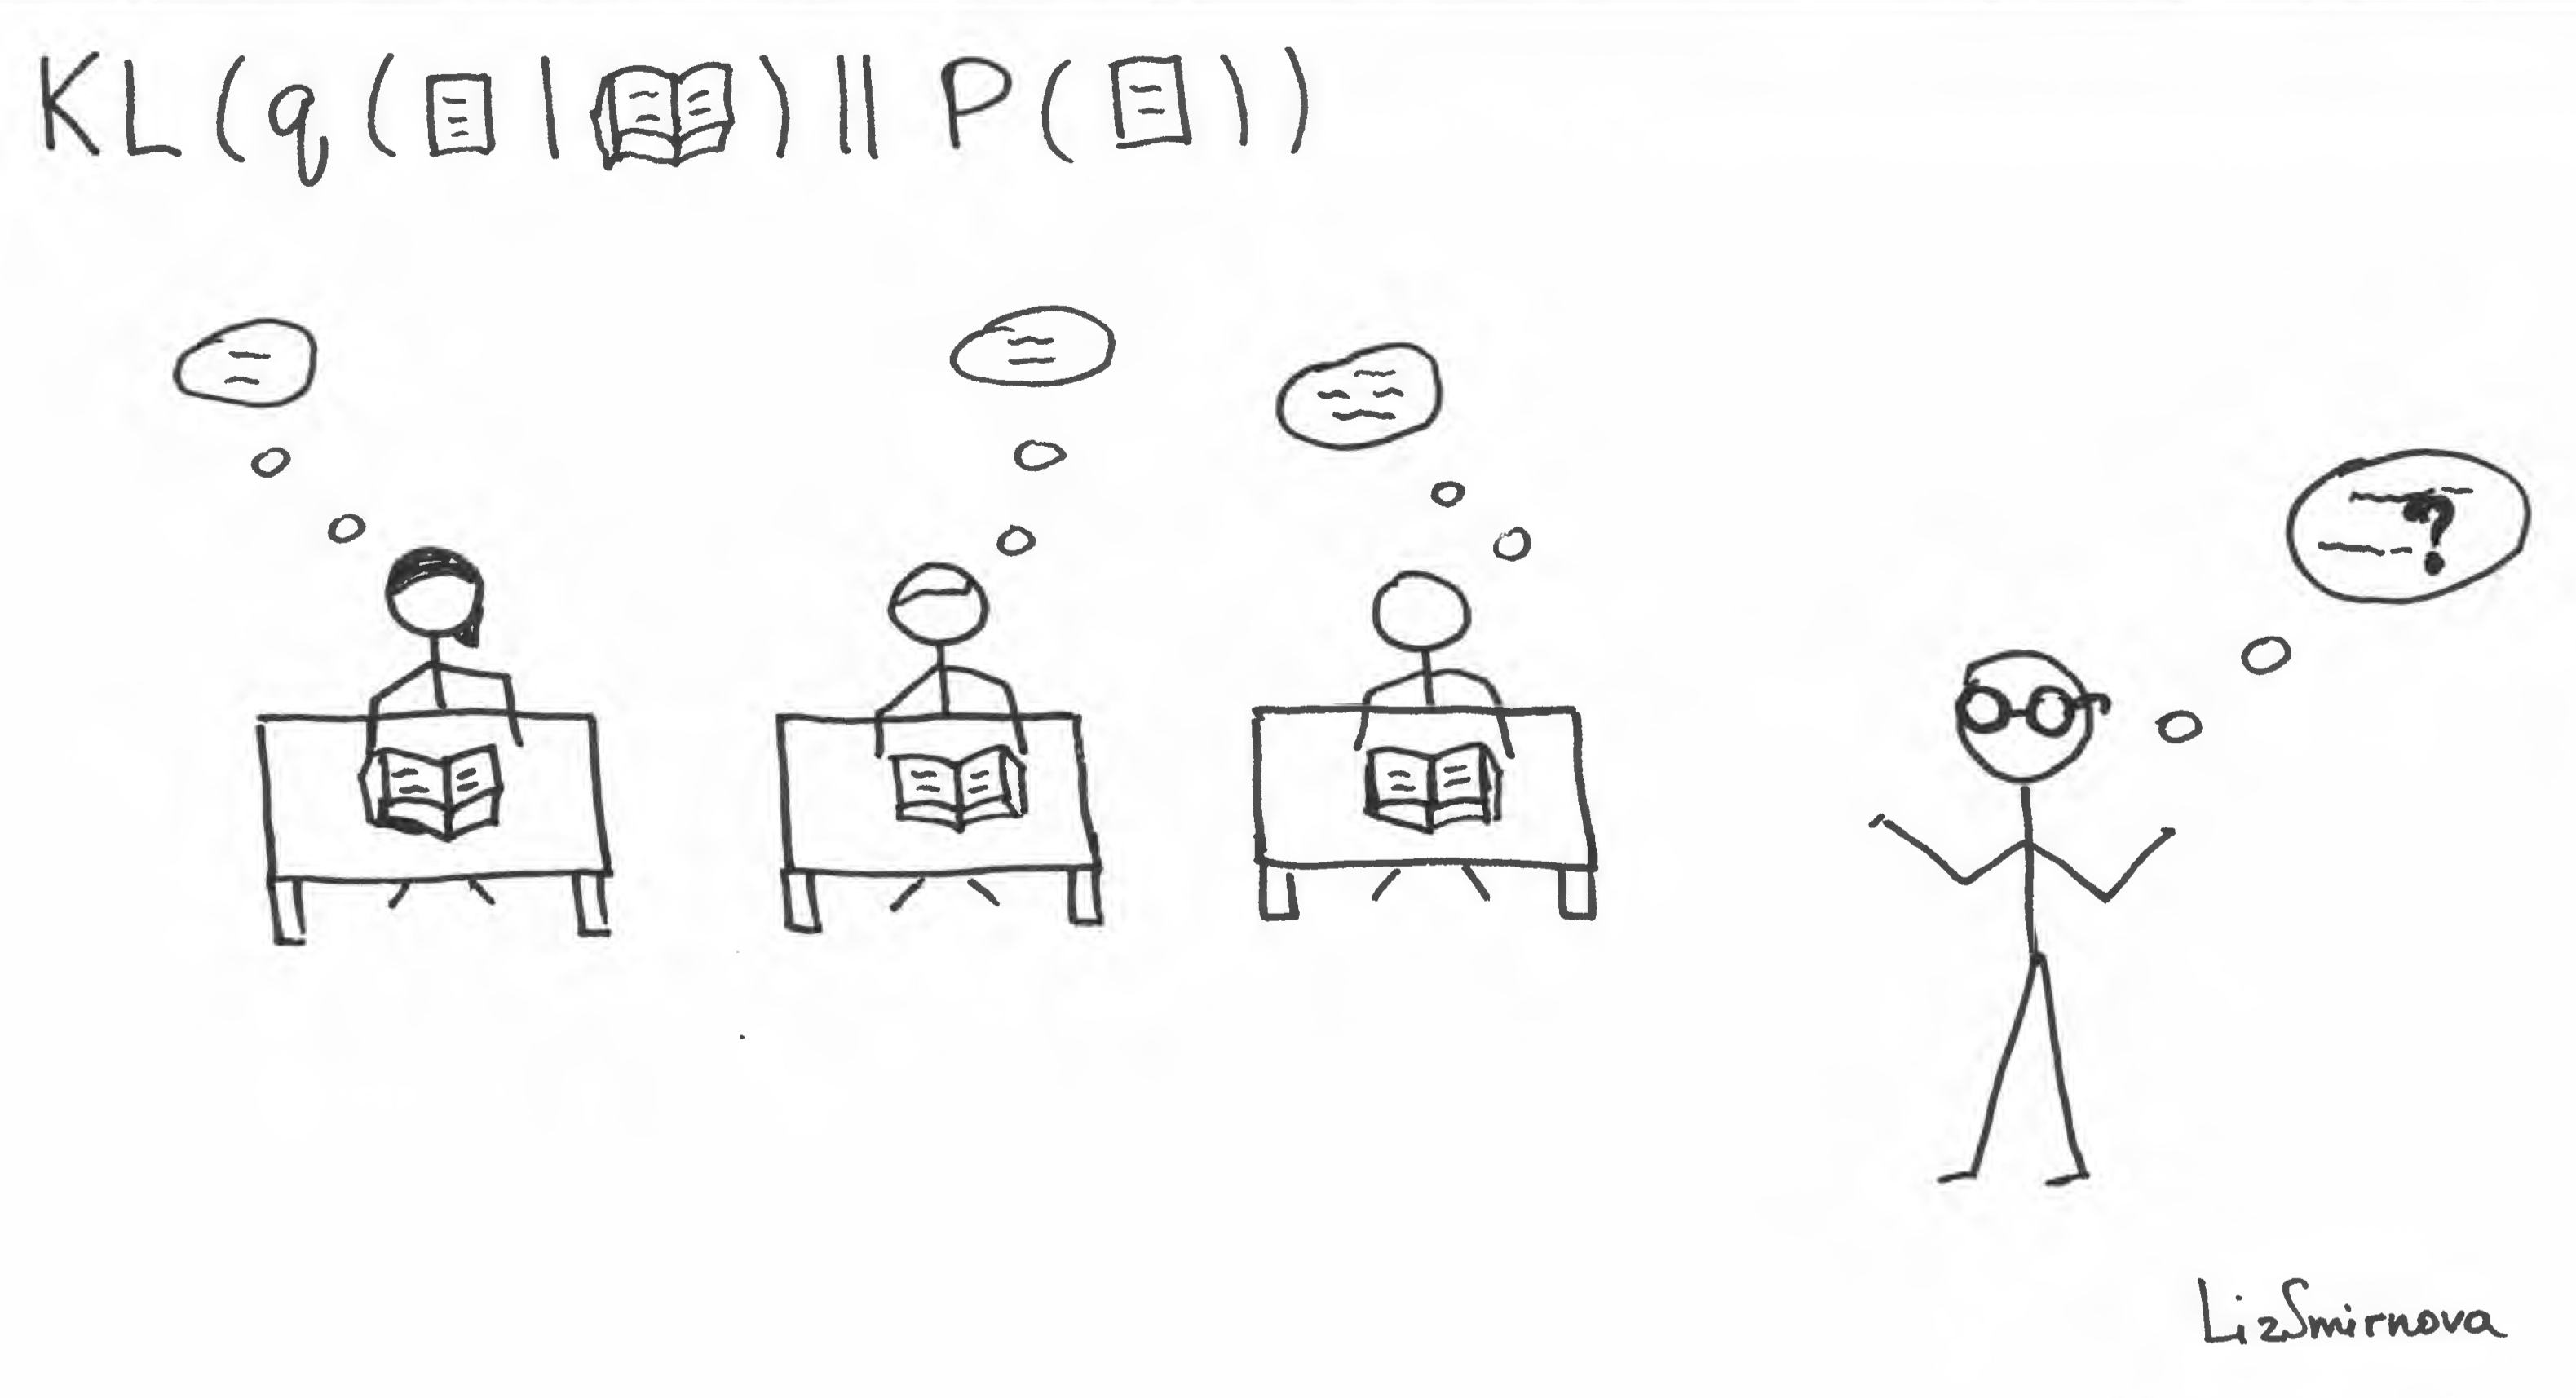 KL(q( | ) || P( ))
?
LizSmirnova